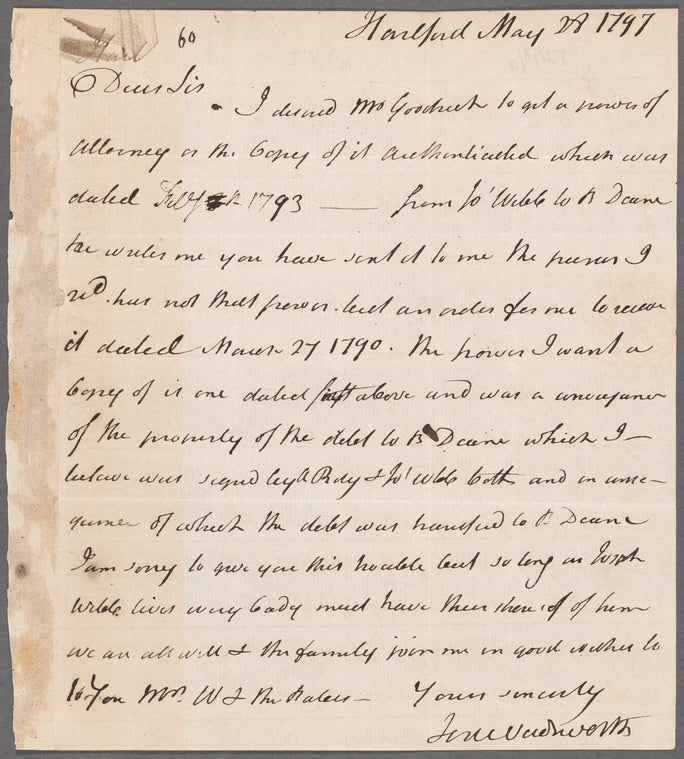 60
Hartford May 28 1797
Dear Sir
I desired Mr Goodrich to get a power of
Attorney or the Copey of it Authenticated which was
dated Feby 1793 —— from Jos Webb to B Deane
he writes me you have sent it to me the power I
recd. has not that power. but an order for me to receive
it dated March 27 1790. the power I want a
Copey of is one dated first above and was a conveyance
of the property of the debt to B Deane which I —
beleive was signed by & Jos Webb both and in conse-
quence of which the debt was transferd to B Deane
I am sorry to give you this trouble but so long as Joseph
Webb lives every body must have their share of him
we are all well & the family join me in good wishes to
You Mrs. W & the Babes — Yours sincerely
Jere Wadsworth